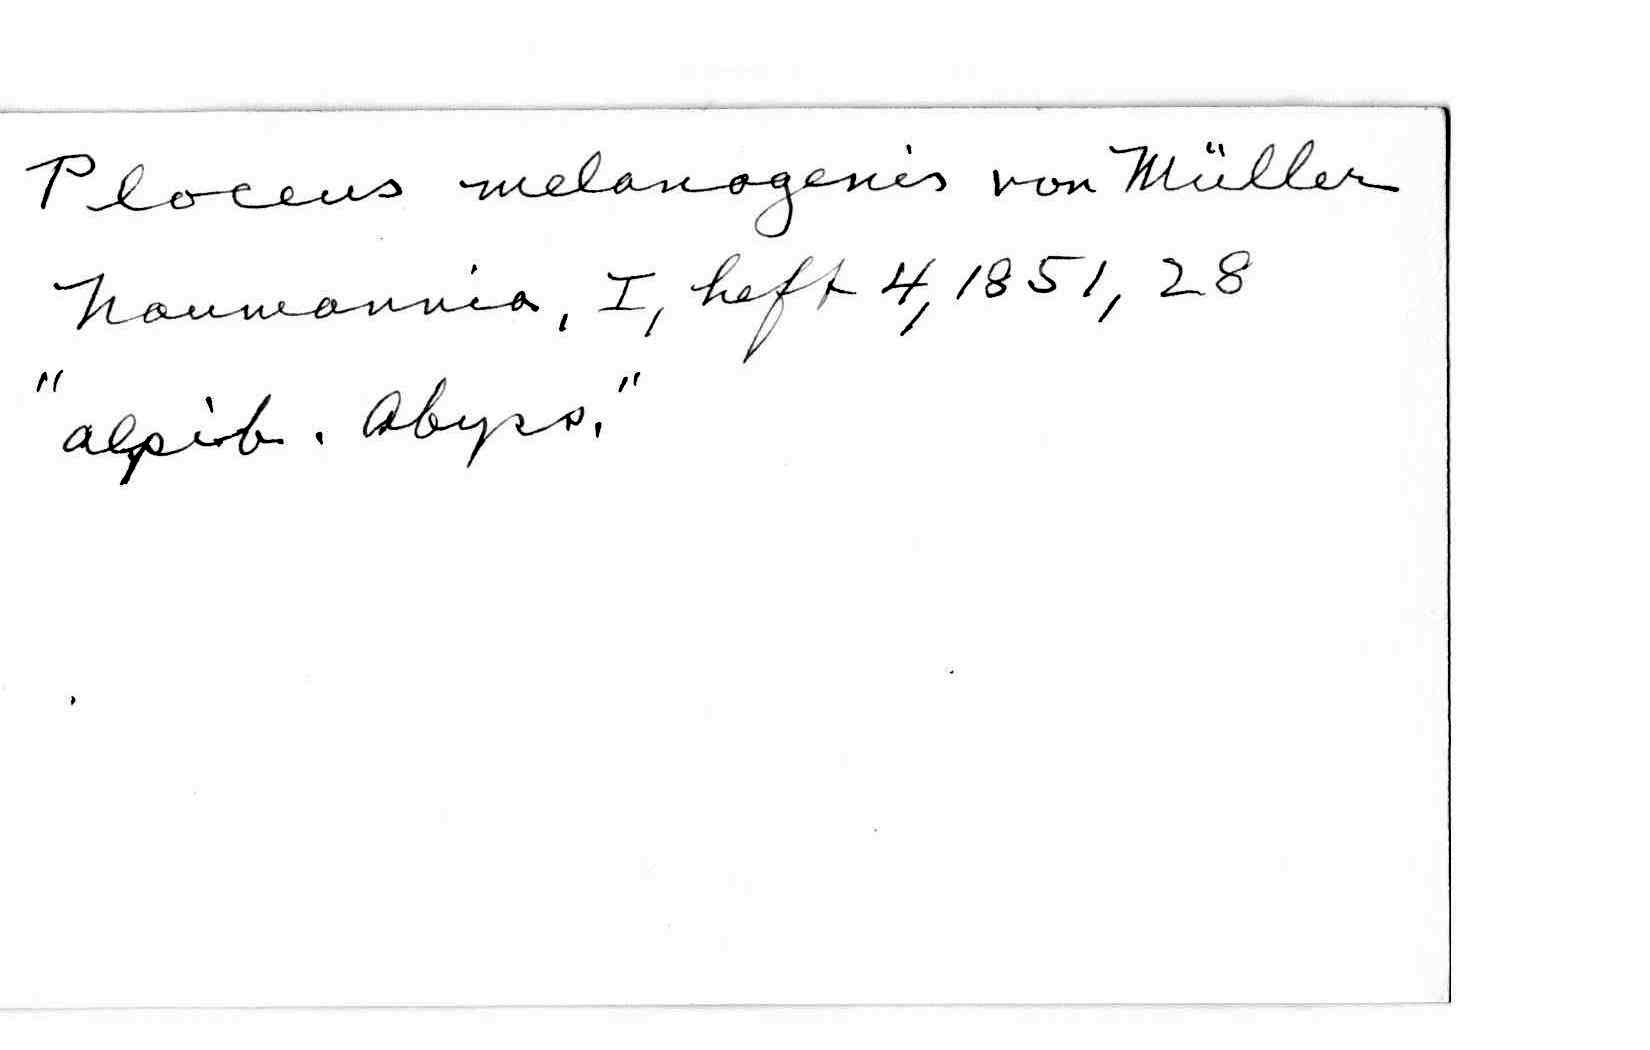 Ploceus melanogenis von Müller
Naumannia, I, heft 4, 1851, 28
"alpib. Abyss."